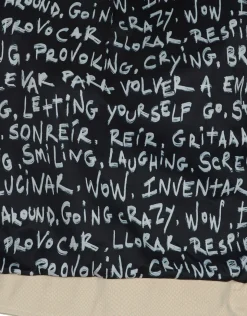 AROUND, GOING CRAZY, WOW,
PROVOCAR, LLORAR, RESPI
NG, PROVOKING, CRYING, BR
LEVAR PARA VOLVER A EM
G, LETTING YOURSELF GO, S
SONREÍR, REÍR GRITAR
G, SMILING, LAUGHING, SCRE
LUCINAR, WOW, INVENTAR
AROUND, GOING CRAZY, WOW,
PROVOCAR, LLORAR, RESPI
NG, PROVOKING, CRYING, BR